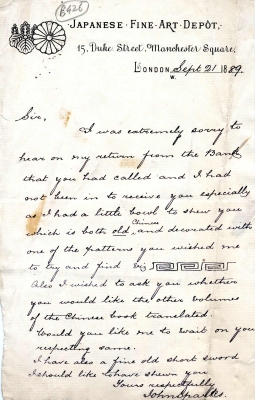 6426
JAPANESE · FINE · ART · DEPÔT,
15, Duke Street, Manchester Square,
LONDON, Sept 21 1889.
W.
Sir,
I was extremely sorry to
hear on my return from the Bank
that you had called and I had
not been in to receive you especially
as I had a little bowl to shew you
Chinese
which is both old and decorated with
one of the patterns you wished me
to try and find viz
Also I wished to ask you whether
you would like the other volumes
of the Chinese book translated.
Would you like me to wait on you
respecting same.
I have also a fine old short sword
I should like to have shewn you
Yours respectfully
John Sparks.